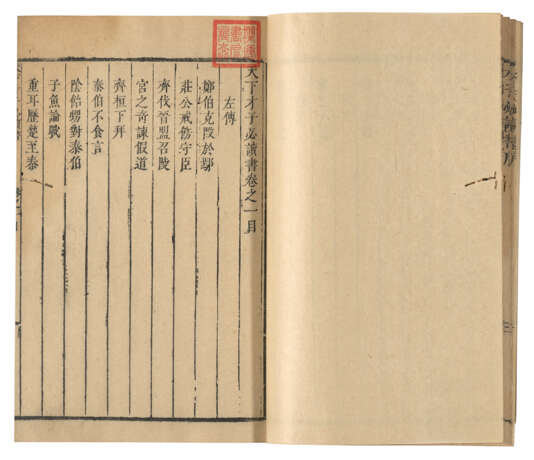 天下才子必讀書卷之一目
左傳
鄭伯克段於鄢
莊公戒飭守臣
齊伐楚盟召陵
宮之奇諫假道
齊桓下拜
秦伯不食言
陰飴甥對秦伯
子魚論戰
重耳歷楚至秦